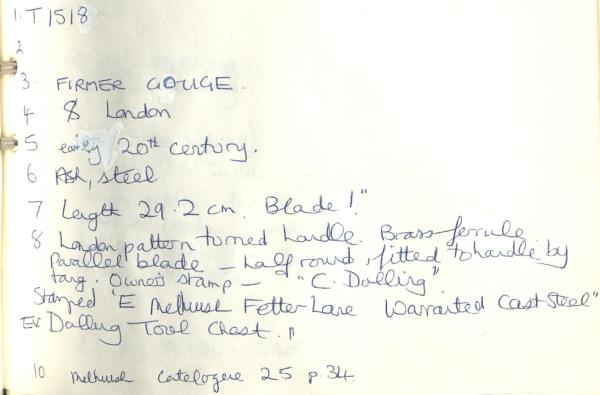 1. T1518
2
3. FIRMER GOUGE.
4 & London
5 early 20th century.
6 Ash, steel
7 Length 29.2 cm. Blade 1"
8 London pattern turned handle. Brass ferrule
Parallel blade – half round, fitted to handle by
tang. Owner's stamp – "C. Dalling".
Stamped 'E Melhuish Fetter Lane Warranted Cast Steel"
Ex Dalling Tool Chest."
10 Melhuish Catalogue 25 p.34